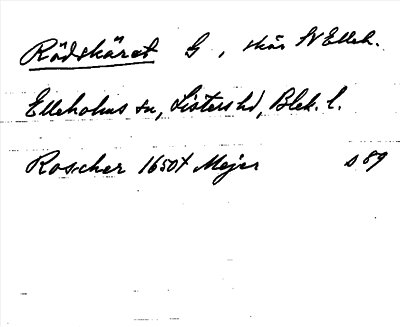 Rödskäret G, skär N Elleh.
Elleholms sn, Listers hd, Blek. l.
Roscher 1650t Mejer s 89